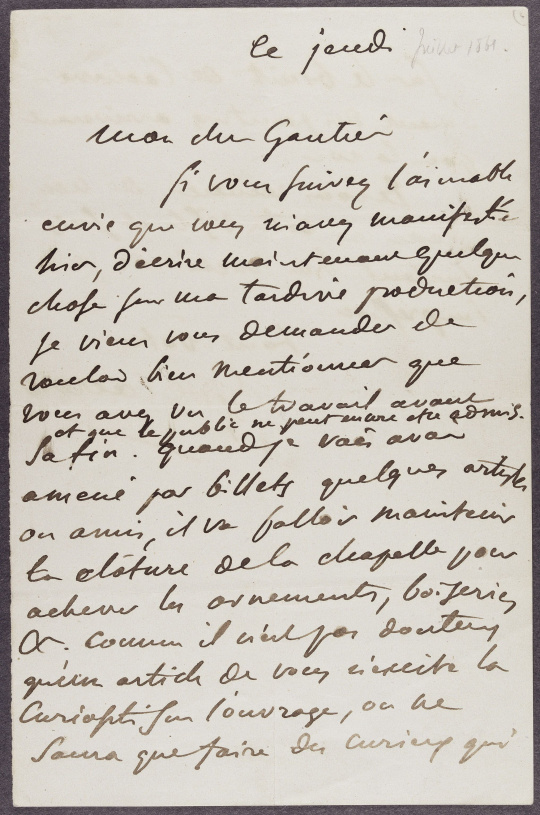 le jeudi juillet 1861.
mon cher Gautier
Si vous suivez l'aimable
envie que vous m'avez manifestée
hier, d'écrire maintenant quelque
chose sur ma tardive production,
je viens vous demander de
vouloir bien mentionner que
vous avez vu le travail avant
et que le public ne peut encore être admis.
sa fin. quand je vais avoir
amené par billets quelques artistes
ou amis, il va falloir maintenir
la clôture de la chapelle pour
achever les ornements, boiseries
&. comme il n'est pas douteux
qu'un article de vous n'excite la
curiosité sur l'ouvrage, on ne
saura que faire des curieux qui